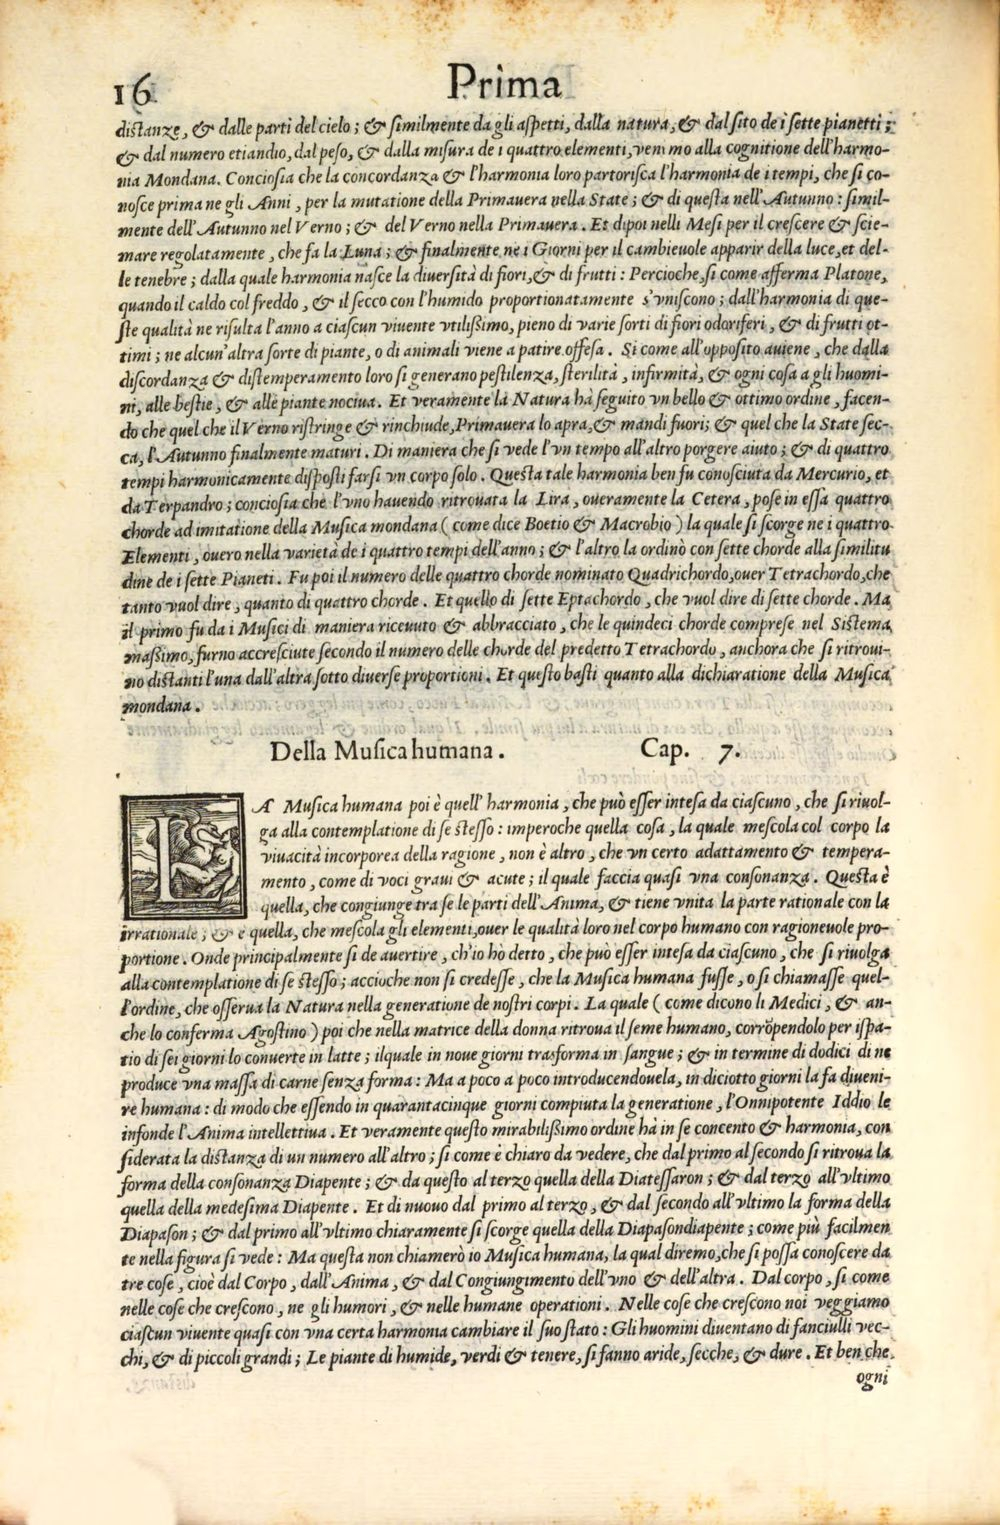 16 Prima
distanze, & dalle parti del cielo; & similmente da gli aspetti, dalla natura, & dal sito de i sette pianetti;
& dal numero etiandio, dal peso, & dalla misura de i quattro elementi, venimo alla cognitione dell'harmo-
nia Mondana. Conciosia che la concordanza & l'harmonia loro partorisca l'harmonia de i tempi, che si co-
nosce prima ne gli Anni, per la mutatione della Primauera nella State; & di questa nell'Autunno: simil-
mente dell'Autunno nel Verno; & del Verno nella Primauera. Et dipoi nelli Mesi per il crescere & scie-
mare regolatamente, che fa la Luna; & finalmente ne i Giorni per il cambieuole apparir della luce, et del-
le tenebre; dalla quale harmonia nasce la diuersità di fiori, & di frutti: Percioche, si come afferma Platone,
quando il caldo col freddo, & il secco con l'humido proportionatamente s'vniscono; dall'harmonia di que-
ste qualità ne risulta l'anno a ciascun viuente vtilißimo, pieno di varie sorti di fiori odoriferi, & di frutti ot-
timi; ne alcun'altra sorte di piante, o di animali viene a patire offesa. Si come all'opposito auiene, che dalla
discordanza & distemperamento loro si generano pestilenza, sterilità, infirmità, & ogni cosa a gli huomi-
ni, alle bestie, & alle piante nociua. Et veramente la Natura hà seguito vn bello & ottimo ordine, facen-
do che quel che il Verno ristringe & rinchiude, Primauera lo apra, & mandi fuori; & quel che la State sec-
ca, l'Autunno finalmente maturi. Di maniera che si vede l'vn tempo all'altro porgere aiuto; & di quattro
tempi harmonicamente disposti farsi vn corpo solo. Questa tale harmonia ben fu conosciuta da Mercurio, et
da Terpandro; conciosia che l'vno hauendo ritrouata la Lira, oueramente la Cetera, pose in essa quattro
chorde ad imitatione della Musica mondana (come dice Boetio & Macrobio) la quale si scorge ne i quattro
Elementi, ouero nella varietà de i quattro tempi dell'anno; & l'altro la ordinò con sette chorde alla similitu
dine de i sette Pianeti. Fu poi il numero delle quattro chorde nominato Quadrichordo, ouer Tetrachordo, che
tanto vuol dire, quanto di quattro chorde. Et quello di sette Eptachordo, che vuol dire di sette chorde. Ma
il primo fu da i Musici di maniera riceuuto & abbracciato, che le quindeci chorde comprese nel Sistema
maßimo, furno accresciute secondo il numero delle chorde del predetto Tetrachordo, anchora che si ritroui-
no distanti l'una dall'altra sotto diuerse proportioni. Et questo basti quanto alla dichiaratione della Musica
mondana.
Della Musica humana. Cap. 7.
LA Musica humana poi è quell'harmonia, che può esser intesa da ciascuno, che si riuol-
ga alla contemplatione di se stesso: imperoche quella cosa, la quale mescola col corpo la
viuacità incorporea della ragione, non è altro, che vn certo adattamento & tempera-
mento, come di voci graui & acute; il quale faccia quasi vna consonanza. Questa è
quella, che congiunge tra se le parti dell'Anima, & tiene vnita la parte rationale con la
irrationale; & e quella, che mescola gli elementi, ouer le qualità loro nel corpo humano con ragioneuole pro-
portione. Onde principalmente si de auertire, ch'io hò detto, che può esser intesa da ciascuno, che si riuolga
alla contemplatione di se stesso; accioche non si credesse, che la Musica humana fusse, o si chiamasse quel-
l'ordine, che osserua la Natura nella generatione de nostri corpi. La quale (come dicono li Medici, & an-
che lo conferma Agostino) poi che nella matrice della donna ritroua il seme humano, corrõpendolo per ispa-
tio di sei giorni lo conuerte in latte; ilquale in noue giorni trasforma in sangue; & in termine di dodici di ne
produce vna massa di carne senza forma: Ma a poco a poco introducendouela, in diciotto giorni la fa diueni-
re humana: di modo che essendo in quarantacinque giorni compiuta la generatione, l'Onnipotente Iddio le
infonde l'Anima intellettiua. Et veramente questo mirabilißimo ordine hà in se concento & harmonia, con
siderata la distanza di un numero all'altro; si come è chiaro da vedere, che dal primo al secondo si ritroua la
forma della consonanza Diapente; & da questo al terzo quella della Diatessaron; & dal terzo all'vltimo
quella della medesima Diapente. Et di nuouo dal primo al terzo, & dal secondo all'vltimo la forma della
Diapason; & dal primo all'vltimo chiaramente si scorge quella della Diapasondiapente; come più facilmen
te nella figura si vede: Ma questa non chiamerò io Musica humana, la qual diremo, che si possa conoscere da
tre cose, cioè dal Corpo, dall'Anima, & dal Congiungimento dell'vno & dell'altra. Dal corpo, si come
nelle cose che crescono, ne gli humori, & nelle humane operationi. Nelle cose che crescono noi veggiamo
ciascun viuente quasi con vna certa harmonia cambiare il suo stato: Gli huomini diuentano di fanciulli vec-
chi, & di piccoli grandi; Le piante di humide, verdi & tenere, si fanno aride, secche, & dure. Et ben che
ogni